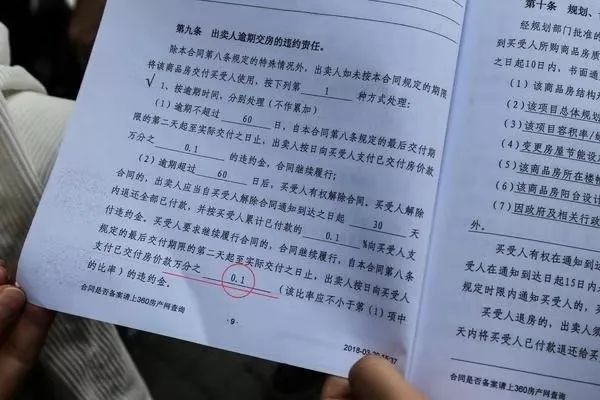 第九条 出卖人逾期交房的违约责任。
除本合同第八条规定的特殊情况外，出卖人如未按本合同规定的期限
将该商品房交付买受人使用，按下列第 1 种方式处理：
√ 1、按逾期时间，分别处理（不作累加）
（1）逾期不超过 60 日，自本合同第八条规定的最后交付期
限的第二天起至实际交付之日止，出卖人按日向买受人支付已交付房价款
万分之 0.1 的违约金，合同继续履行；
（2）逾期超过 60 日后，买受人有权解除合同。买受人解除
合同的，出卖人应当自买受人解除合同通知到达之日起 30 天
内退还全部已付款，并按买受人累计已付款的 0.1 %向买受人支
付违约金。买受人要求继续履行合同的，合同继续履行，自本合同第八条
规定的最后交付期限的第二天起至实际交付之日止，出卖人按日向买受人
支付已交付房价款万分之 0.1 （该比率应不小于第（1）项中
的比率）的违约金。
· 9 ·
合同是否备案请上360房产网查询
2018-03-
第十条 规划、
经规划部门批准的
到买受人所购商品房质
之日起10日内，书面通
（1）该商品房结构
（2）该项目总体规划
（3）该项目容积率/
（4）变更房屋节能设
（5）该商品房所在楼
（6）该商品房阳台设计
（7）因政府及相关行政
外。
买受人有权在通知到
受人在通知到达日起15日内
规定时限内通知买受人的，买
买受人退房的，出卖人须
天内将买受人已付款退还给买
合同是否备案请上360房产网查询